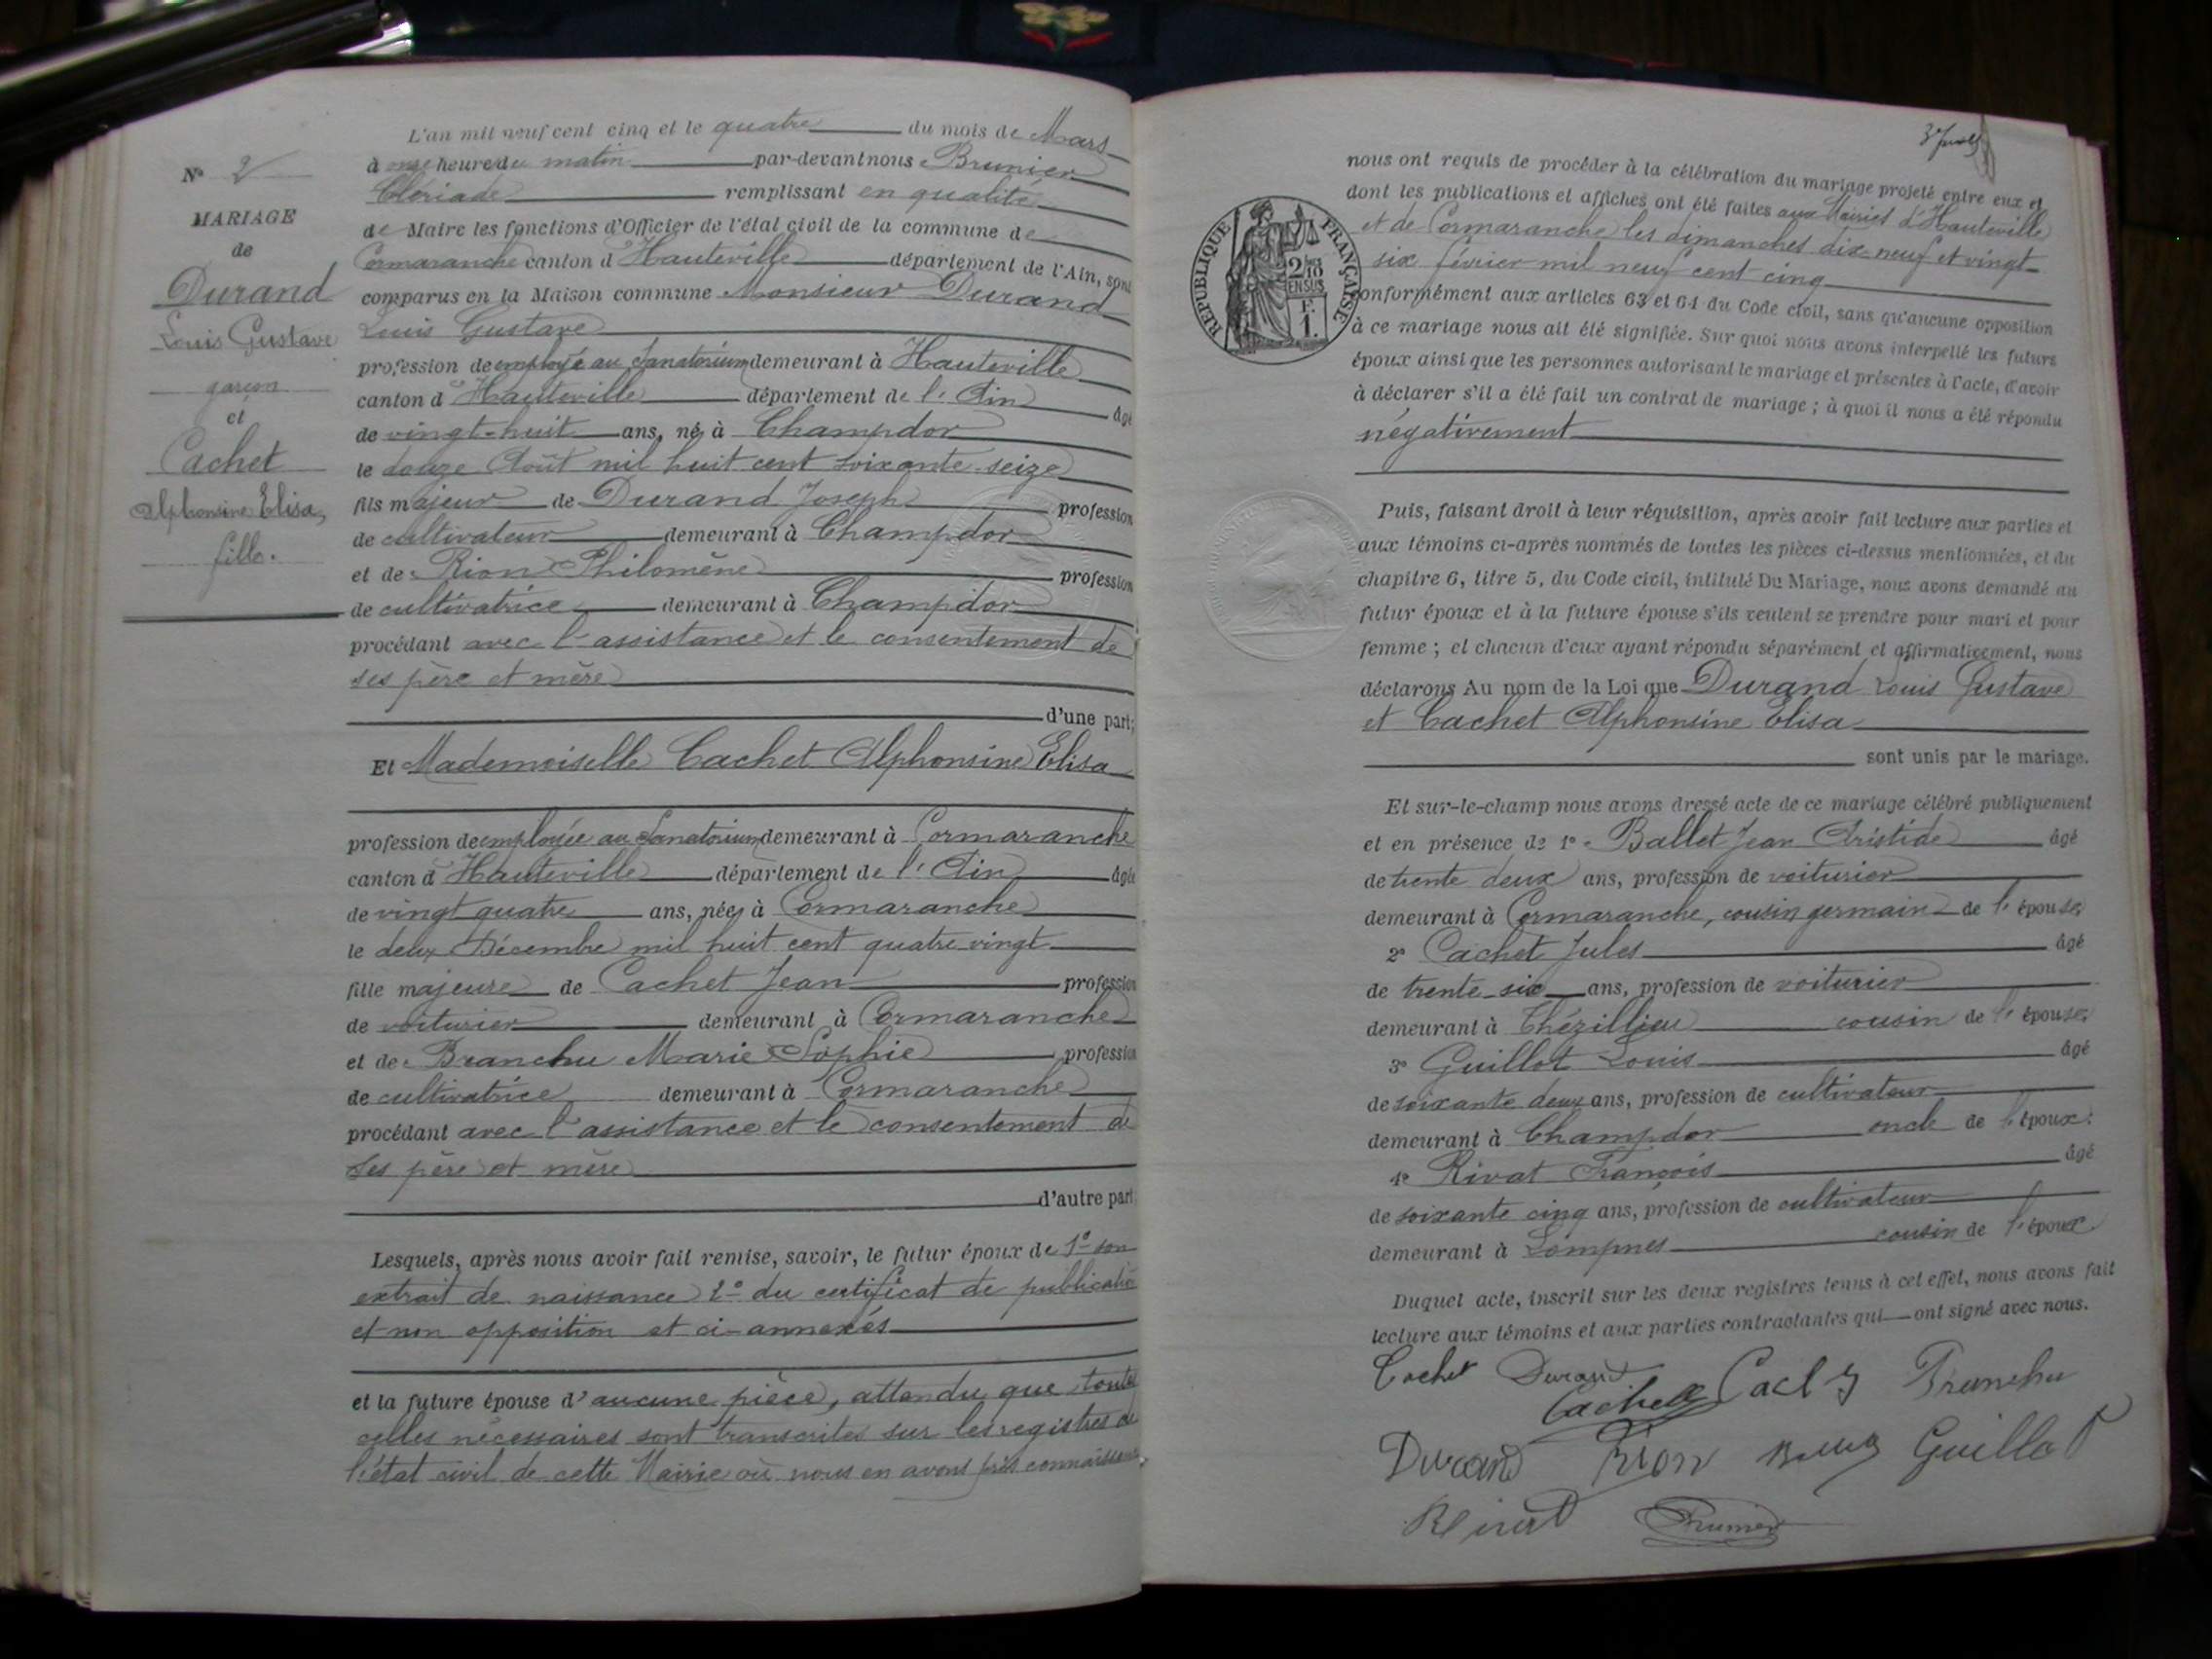 N° 2
MARIAGE
de
Durand
Louis Gustave
garçon
et
Cachet
Alphonsine Elisa,
fille.
L'an mil neuf cent cinq et le quatre du mois de Mars
à onze heure du matin par-devant nous Brunier
Clériade remplissant en qualité
de Maire les fonctions d'Officier de l'état civil de la commune de
Cormaranche canton d'Hauteville département de l'Ain, sont
comparus en la Maison commune Monsieur Durand
Louis Gustave
profession de employé au Sanatorium demeurant à Hauteville
canton d'Hauteville département de l'Ain âgé
de vingt-huit ans, né à Champdor
le douze Août mil huit cent soixante-seize
fils majeur de Durand Joseph profession
de cultivateur demeurant à Champdor
et de Rion Philomène profession
de cultivatrice demeurant à Champdor
procédant avec l'assistance et le consentement de
ses père et mère
d'une part;
Et Mademoiselle Cachet Alphonsine Elisa
profession de employée au Sanatorium demeurant à Cormaranche
canton d'Hauteville département de l'Ain âgée
de vingt quatre ans, née à Cormaranche
le deux Décembre mil huit cent quatre-vingt
fille majeure de Cachet Jean profession
de voiturier demeurant à Cormaranche
et de Branchu Marie Sophie profession
de cultivatrice demeurant à Cormaranche
procédant avec l'assistance et le consentement de
ses père et mère
d'autre part
Lesquels, après nous avoir fait remise, savoir, le futur époux de 1° son
extrait de naissance 2° du certificat de publication
et non opposition et ci-annexés
et la future épouse d'aucune pièce, attendu que toutes
celles nécessaires sont transcrites sur les registres de
l'état civil de cette Mairie où nous en avons pris connaissance,
nous ont requis de procéder à la célébration du mariage projeté entre eux et
dont les publications et affiches ont été faites aux Mairies d'Hauteville
et de Cormaranche les dimanches dix-neuf et vingt-
six février mil neuf cent cinq
RÉPUBLIQUE FRANÇAISE
2/10 EN SUS
F. 1.
conformément aux articles 63 et 64 du Code civil, sans qu'aucune opposition
à ce mariage nous ait été signifiée. Sur quoi nous avons interpellé les futurs
époux ainsi que les personnes autorisant le mariage et présentes à l'acte, d'avoir
à déclarer s'il a été fait un contrat de mariage ; à quoi il nous a été répondu
négativement
Puis, faisant droit à leur réquisition, après avoir fait lecture aux parties et
aux témoins ci-après nommés de toutes les pièces ci-dessus mentionnées, et du
chapitre 6, titre 5, du Code civil, intitulé Du Mariage, nous avons demandé au
futur époux et à la future épouse s'ils veulent se prendre pour mari et pour
femme ; et chacun d'eux ayant répondu séparément et affirmativement, nous
déclarons Au nom de la Loi que Durand Louis Gustave
et Cachet Alphonsine Elisa
sont unis par le mariage.
Et sur-le-champ nous avons dressé acte de ce mariage célébré publiquement
et en présence de 1° Ballet Jean Aristide âgé
de trente deux ans, profession de voiturier
demeurant à Cormaranche, cousin germain de l'épouse
2° Cachet Jules âgé
de trente-six ans, profession de voiturier
demeurant à Thézillieu cousin de l'épouse
3° Guillot Louis âgé
de soixante deux ans, profession de cultivateur
demeurant à Champdor oncle de l'époux
4° Rivat François âgé
de soixante cinq ans, profession de cultivateur
demeurant à Lompnes cousin de l'époux
Duquel acte, inscrit sur les deux registres tenus à cet effet, nous avons fait
lecture aux témoins et aux parties contractantes qui ont signé avec nous.
Cachet Durand Cachet Branchu
Durand Rion Guillot
Brunier